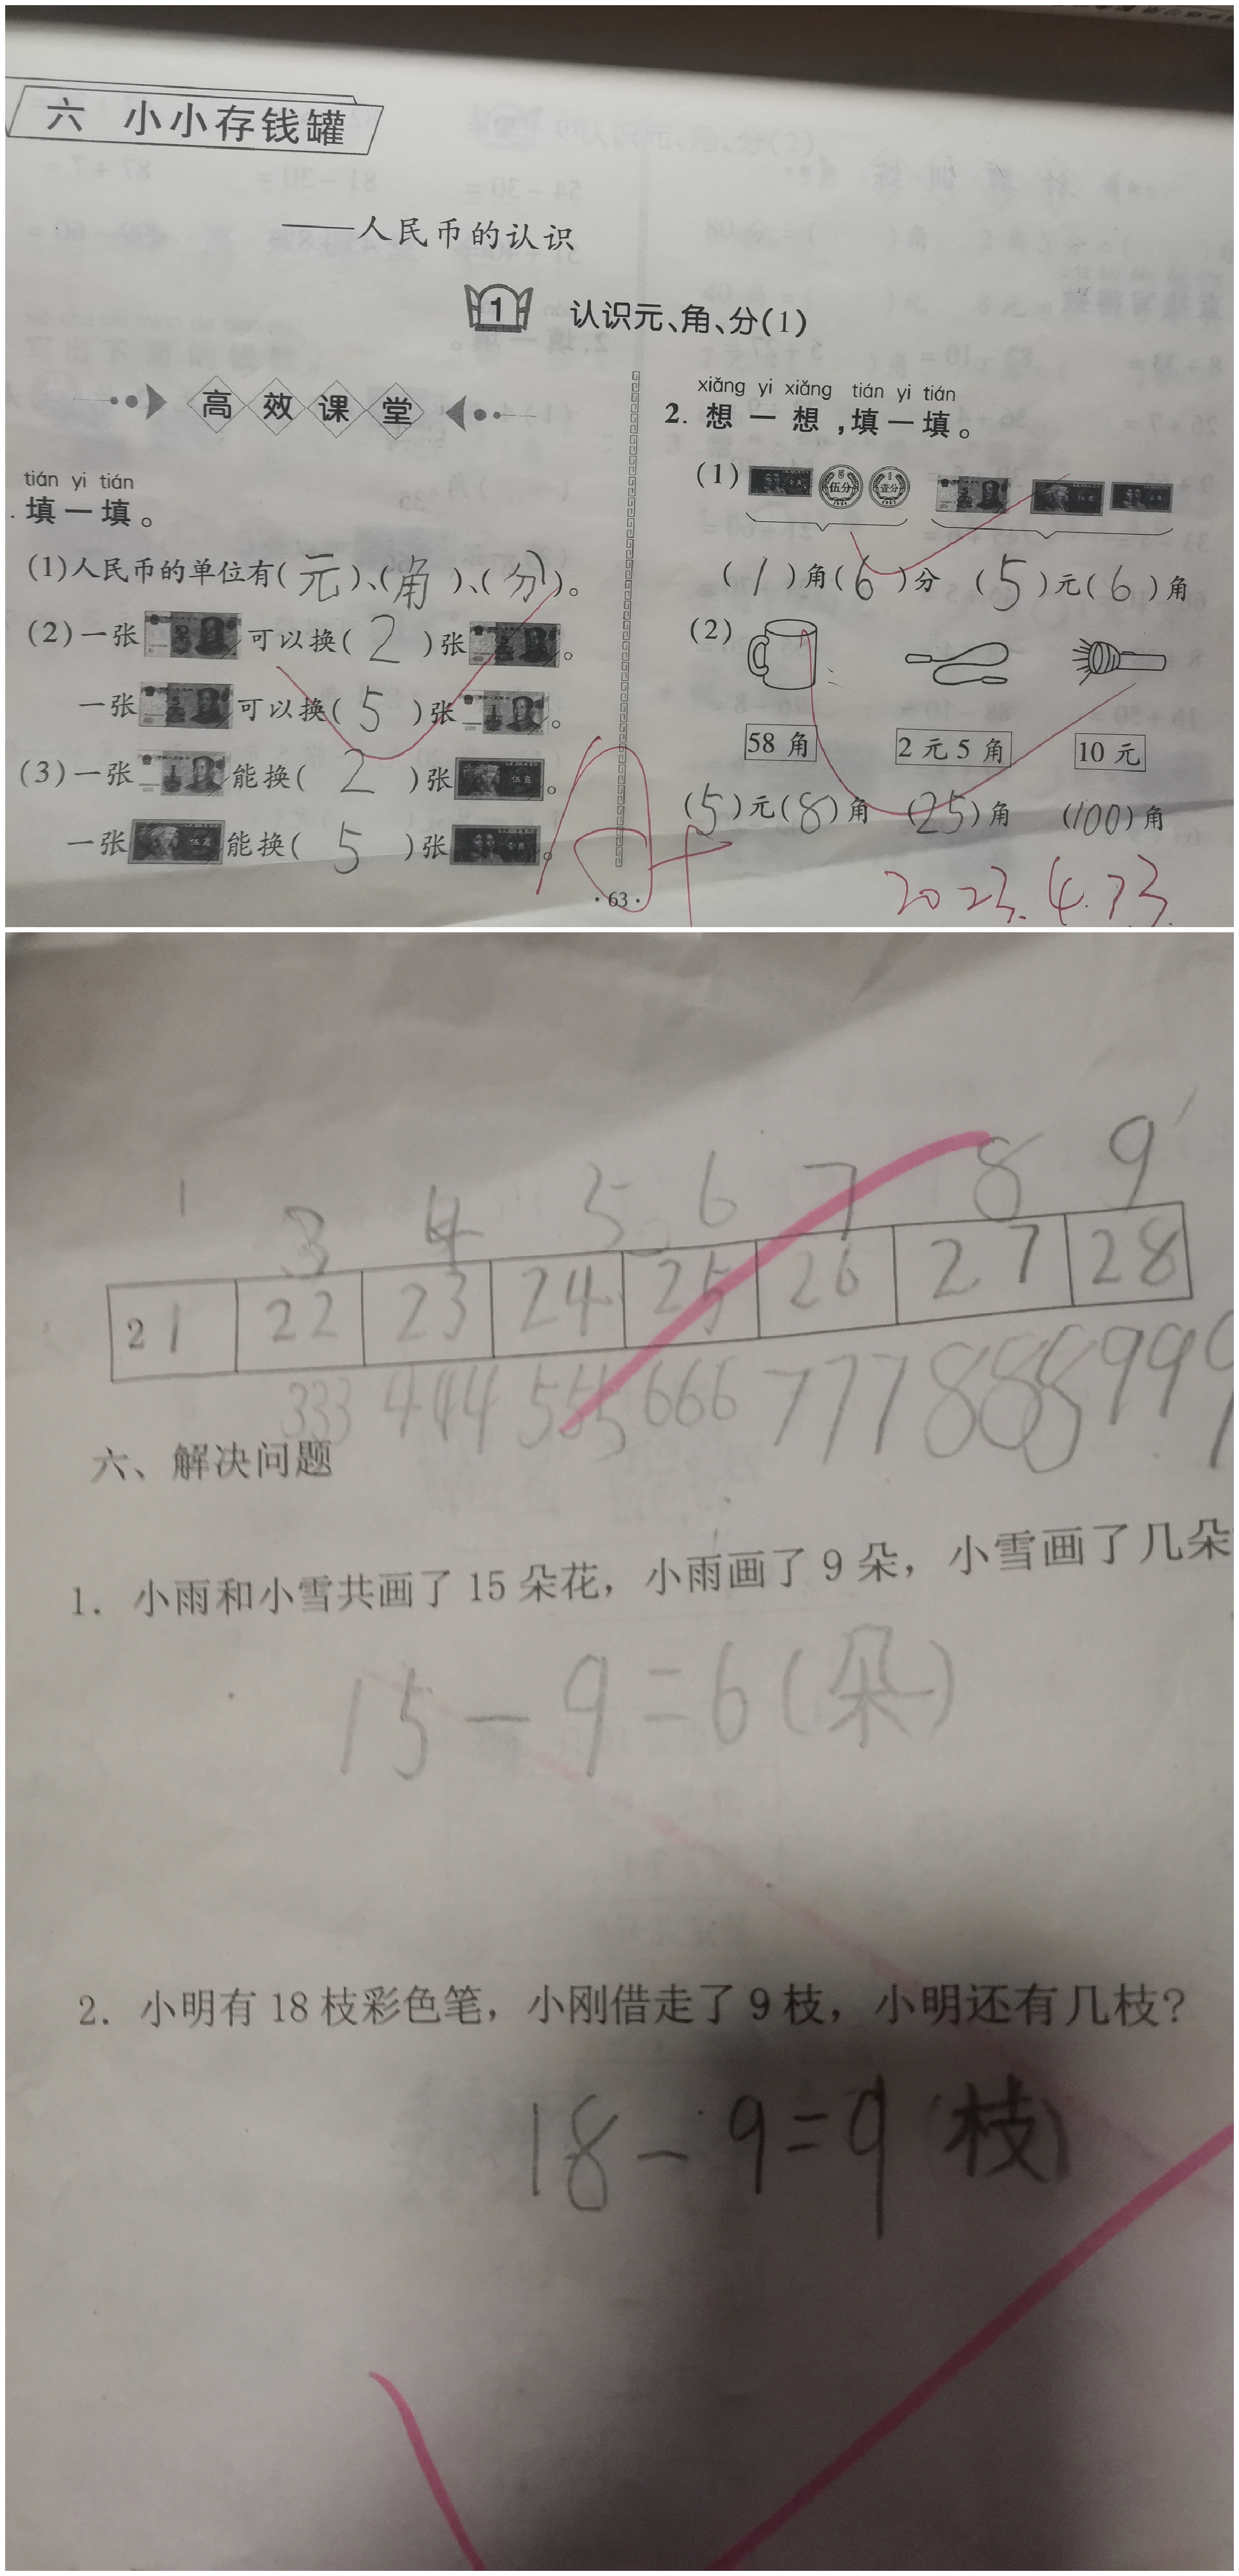 六 小小存钱罐
——人民币的认识
1 认识元、角、分(1)
高效课堂
tián yi tián
填一填。
(1)人民币的单位有(元)、(角)、(分)。
(2)一张可以换(2)张。
一张可以换(5)张。
(3)一张能换(2)张。
一张能换(5)张。
xiǎng yi xiǎng tián yi tián
2. 想一想,填一填。
(1) 伍分 壹分
(1)角(6)分 (5)元(6)角
(2)
58角 2元5角 10元
(5)元(8)角 (25)角 (100)角
A+
·63·
2023.4.23.
1 3 4 5 6 7 8 9
21 22 23 24 25 26 27 28
333 444 555 666 777 888 999
六、解决问题
1. 小雨和小雪共画了15朵花,小雨画了9朵,小雪画了几朵
15-9=6(朵)
2. 小明有18枝彩色笔,小刚借走了9枝,小明还有几枝?
18-9=9(枝)